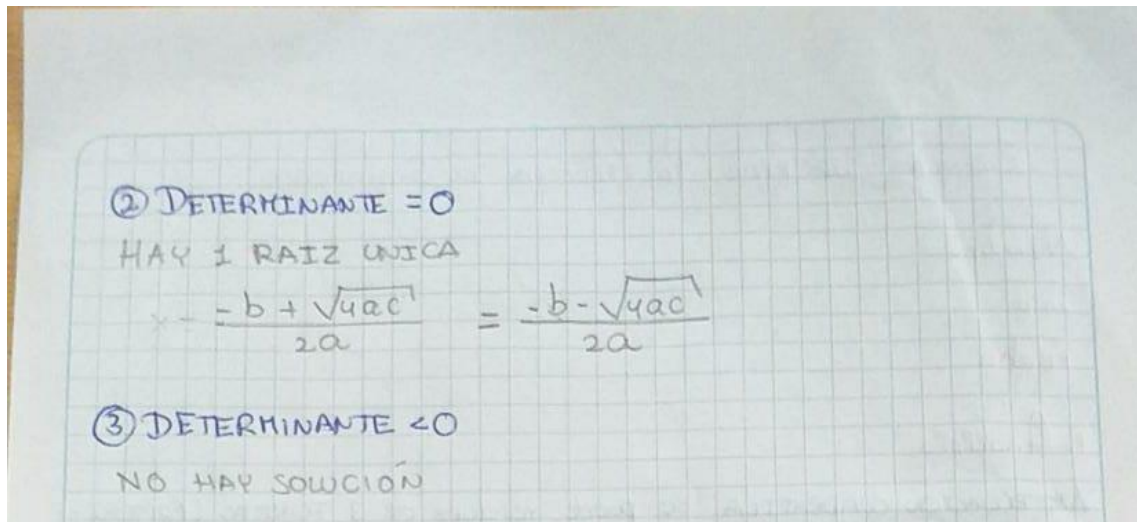 ② DETERMINANTE = 0
HAY 1 RAIZ UNICA
-b + √4ac / 2a = -b - √4ac / 2a
③ DETERMINANTE <0
NO HAY SOLUCIÓN